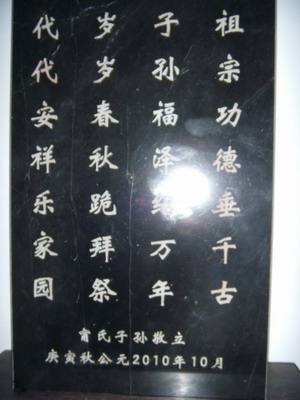 祖宗功德垂千古
子孙福泽万年
岁岁春秋跪拜祭
代代安祥乐家园
育氏子孙敬立
庚寅秋公元2010年10月